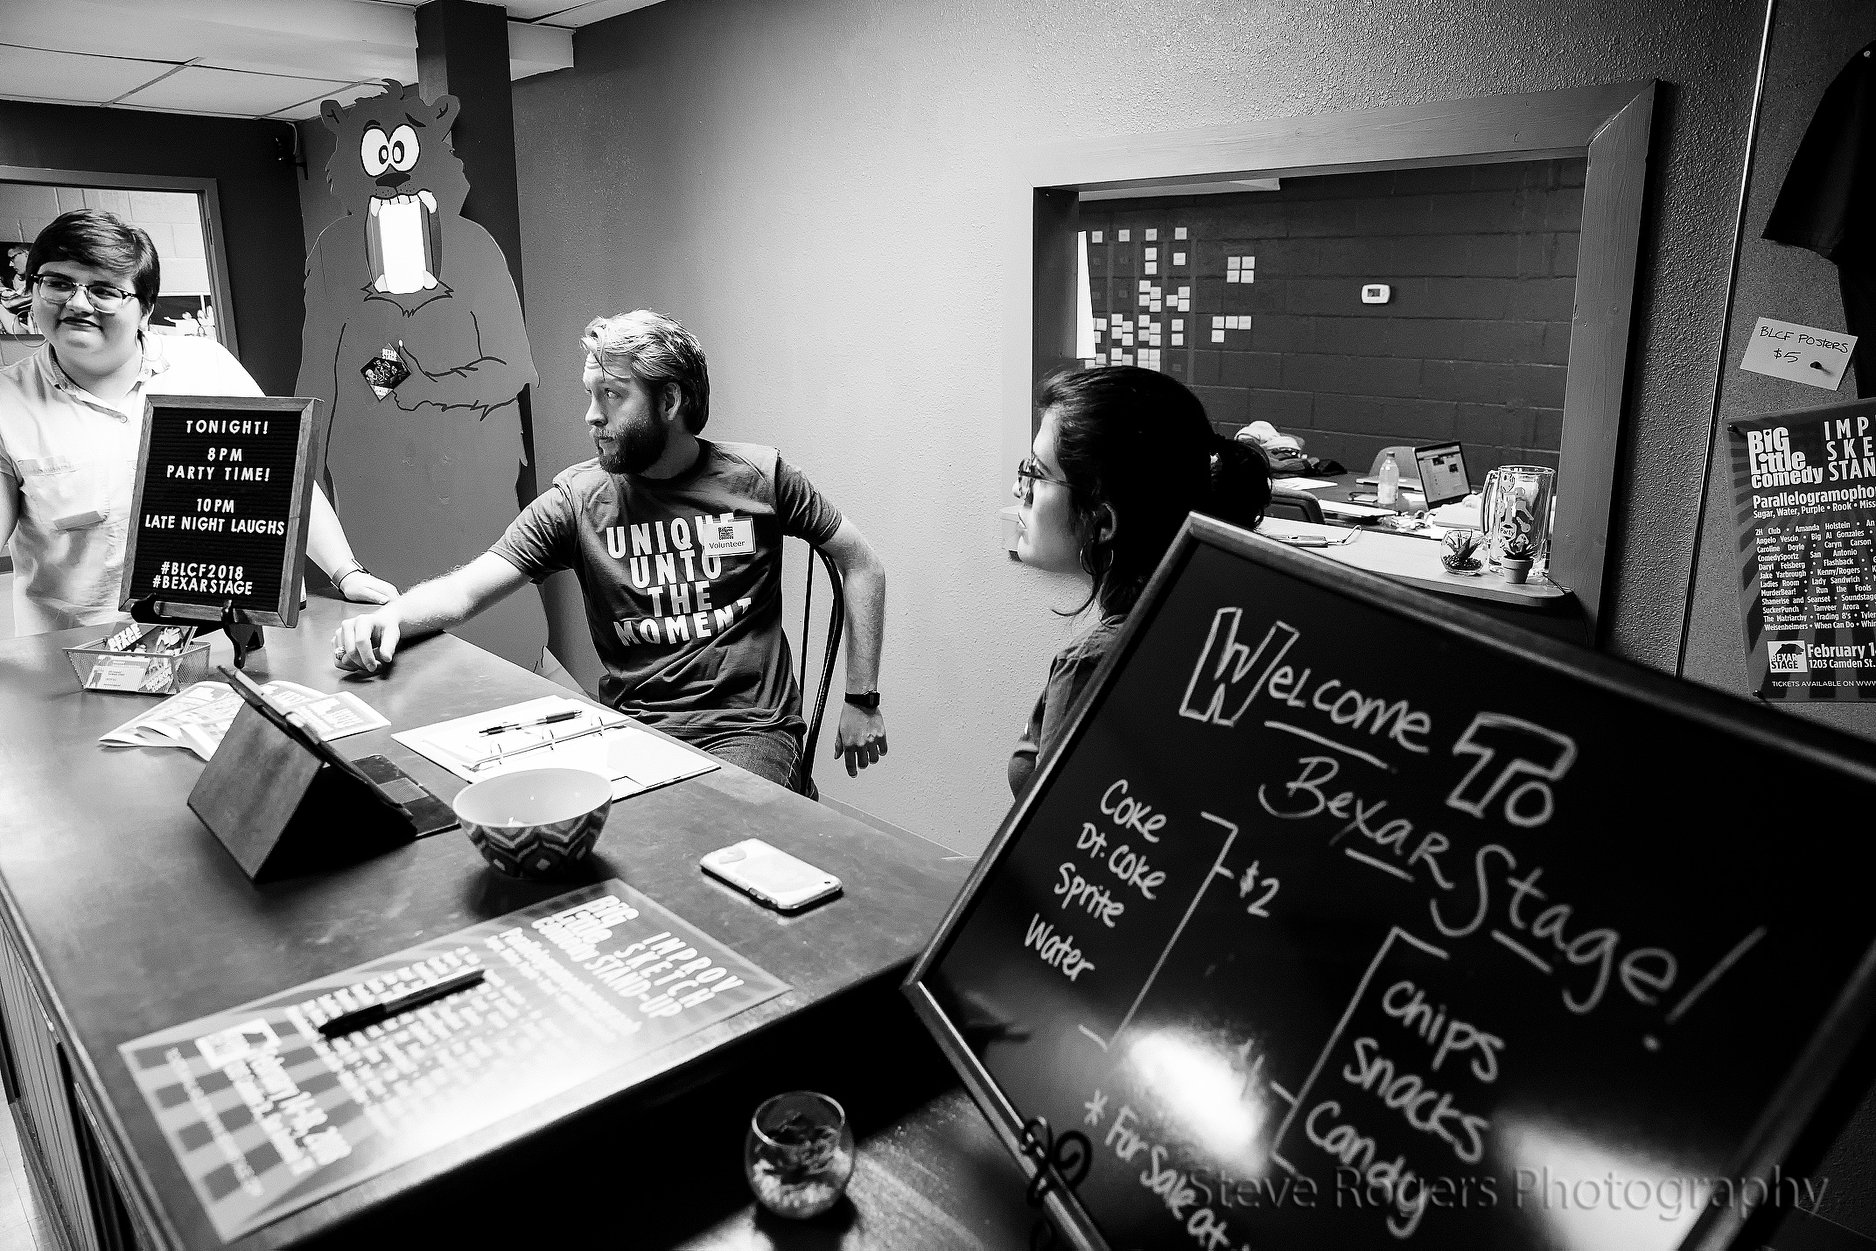 TONIGHT!
8PM
PARTY TIME!
10PM
LATE NIGHT LAUGHS
#BLCF2018
#BEXARSTAGE
UNIQUE
UNTO
THE
MOMENT
Volunteer
BLCF POSTERS
$5
BiG
Little
comedy
IMP
SKE
STAN
Parallelogramophо
Sugar, Water, Purple • Rook • Miss
ZH Club • Amanda Holstein • A
Angelo Vescio • Big Al Gonzales •
Caroline Doyle • Caryn Carson
ComedySportz • San Antonio •
Daryl Felsberg • Flashback •
Jake Yarbrough • Kenny/Rogers • K
Ladies Room • Lady Sandwich •
MurderBear! • Run the Fools
Shanerise and Seanset • Soundstage
SuckerPunch • Tanveer Arora •
The Matriarchy • Trading 8's • Tyler
Weisenheimers • When Can Do • Whir
BEXAR
STAGE
February 1
1203 Camden St.
TICKETS AVAILABLE ON WWW
Welcome To
Bexar Stage!
Coke
Dt. Coke
Sprite
Water
$2
Chips
Snacks
Candy
* For Sale at
BiG
Little
Comedy
IMPROV
SKETCH
STAND-UP
Steve Rogers Photography